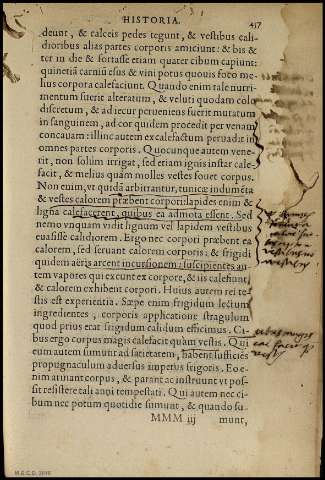 HISTORIA. 457
deunt, & calceis pedes tegunt, & vestibus cali-
dioribus alias partes corporis amiciunt: & bis &
ter in die & fortasse etiam quater cibum capiunt:
quinetiā carniū esus & vini potus quouis foto me-
lius corpora calefaciunt. Quando enim tale nutri-
mentum fuerit alteratum, & veluti quodam colo
discretum, & ad iecur perueniens fuerit mutatum
in sanguinem, ad cor quidem procedit per venam
concauam: illinc autem ex calefactum peruadit in
omnes partes corporis. Quocunque autem vene-
rit, non solùm irrigat, sed etiam ignis instar cale-
facit, & melius quàm molles vestes fouet corpus.
Non enim, vt quidā arbitrantur, tunicæ indumēta
& vestes calorem præbent corpori: lapides enim &
ligna calefacerent, quibus ea admota essent. Sed
nemo vnquam vidit lignum vel lapidem vestibus
euasisse calidiorem. Ergo nec corpori præbent ea
calorem, sed seruant calorem corporis: & frigidi
quidem aëris arcent incursionem: suscipientes au-
tem vapores qui exeunt ex corpore, & iis calefiunt,
& calorem exhibent corpori. Huius autem rei te-
stis est experientia. Sæpe enim frigidum lectum
ingredientes, corporis applicatione stragulum
quod prius erat frigidum calidum efficimus. Ci-
bus ergo corpus magis calefacit quàm vestis. Qui
eum autem sumunt ad satietatem, habent sufficiēs
propugnaculum aduersus impetus frigoris. Eo e-
nim armant corpus, & parant ac instruunt vt pos-
sit resistere tali anni tempestati. Qui autem nec ci-
bum nec potum quotidie sumunt, & quando su-
MMM iij munt,
cibus magis
cale facit q̄
vestis